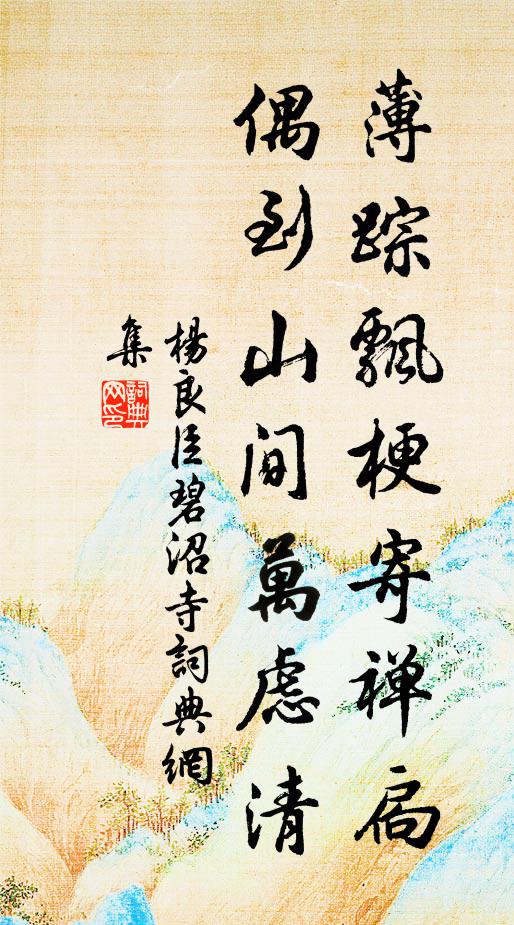 薄踪飄梗寄禅扃
偶到山間萬慮清
楊良臣碧沼寺詞典網
集
詞典網印